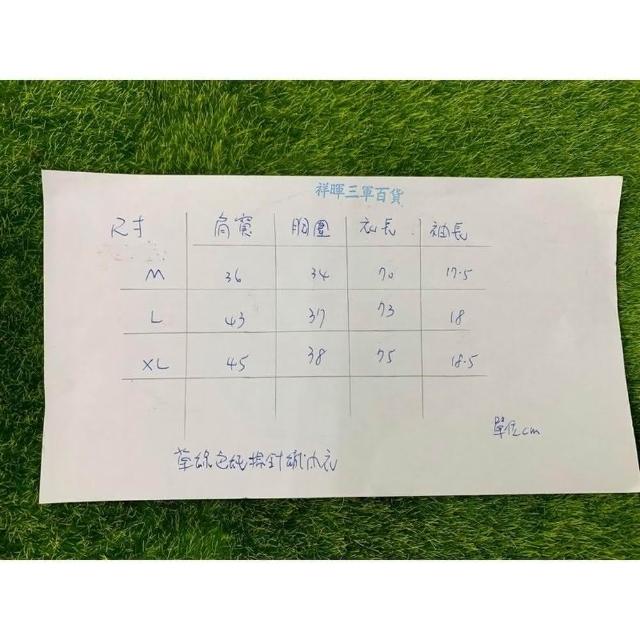 祥暉三軍百貨
尺寸 肩寬 胸圍 衣長 袖長
M 36 34 70 17.5
L 43 37 73 18
XL 45 38 75 18.5
單位cm
草綠色純棉針織內衣